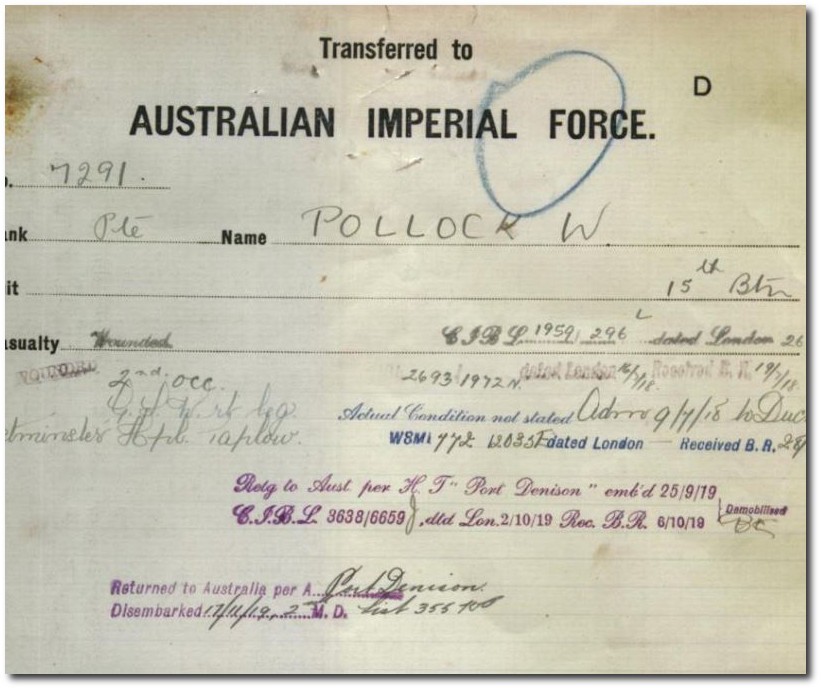 Transferred to
D
AUSTRALIAN IMPERIAL FORCE.
7291.
ank Pte Name POLLOCK W.
it 15th Btn
asualty Wounded C.I.B.L. 1959/296 L dated London 26
WOUNDED 2nd occ. 2693/1972 N. dated London 16/7/18. Received B.R. 19/7/18.
G.S.W. rt leg. Actual Condition not stated Adm 9/7/18 to Duc
tminster Hpl. Taplow. W8M1 772 dated London Received B.R.
Retg to Aust. per H.T "Port Denison" emb'd 25/9/19
C.I.B.L. 3638/6659, dtd Lon. 2/10/19 Rec. B.R. 6/10/19 Demobilised
Returned to Australia per A Port Denison.
Disembarked 17/11/19, 2 M.D. list 355